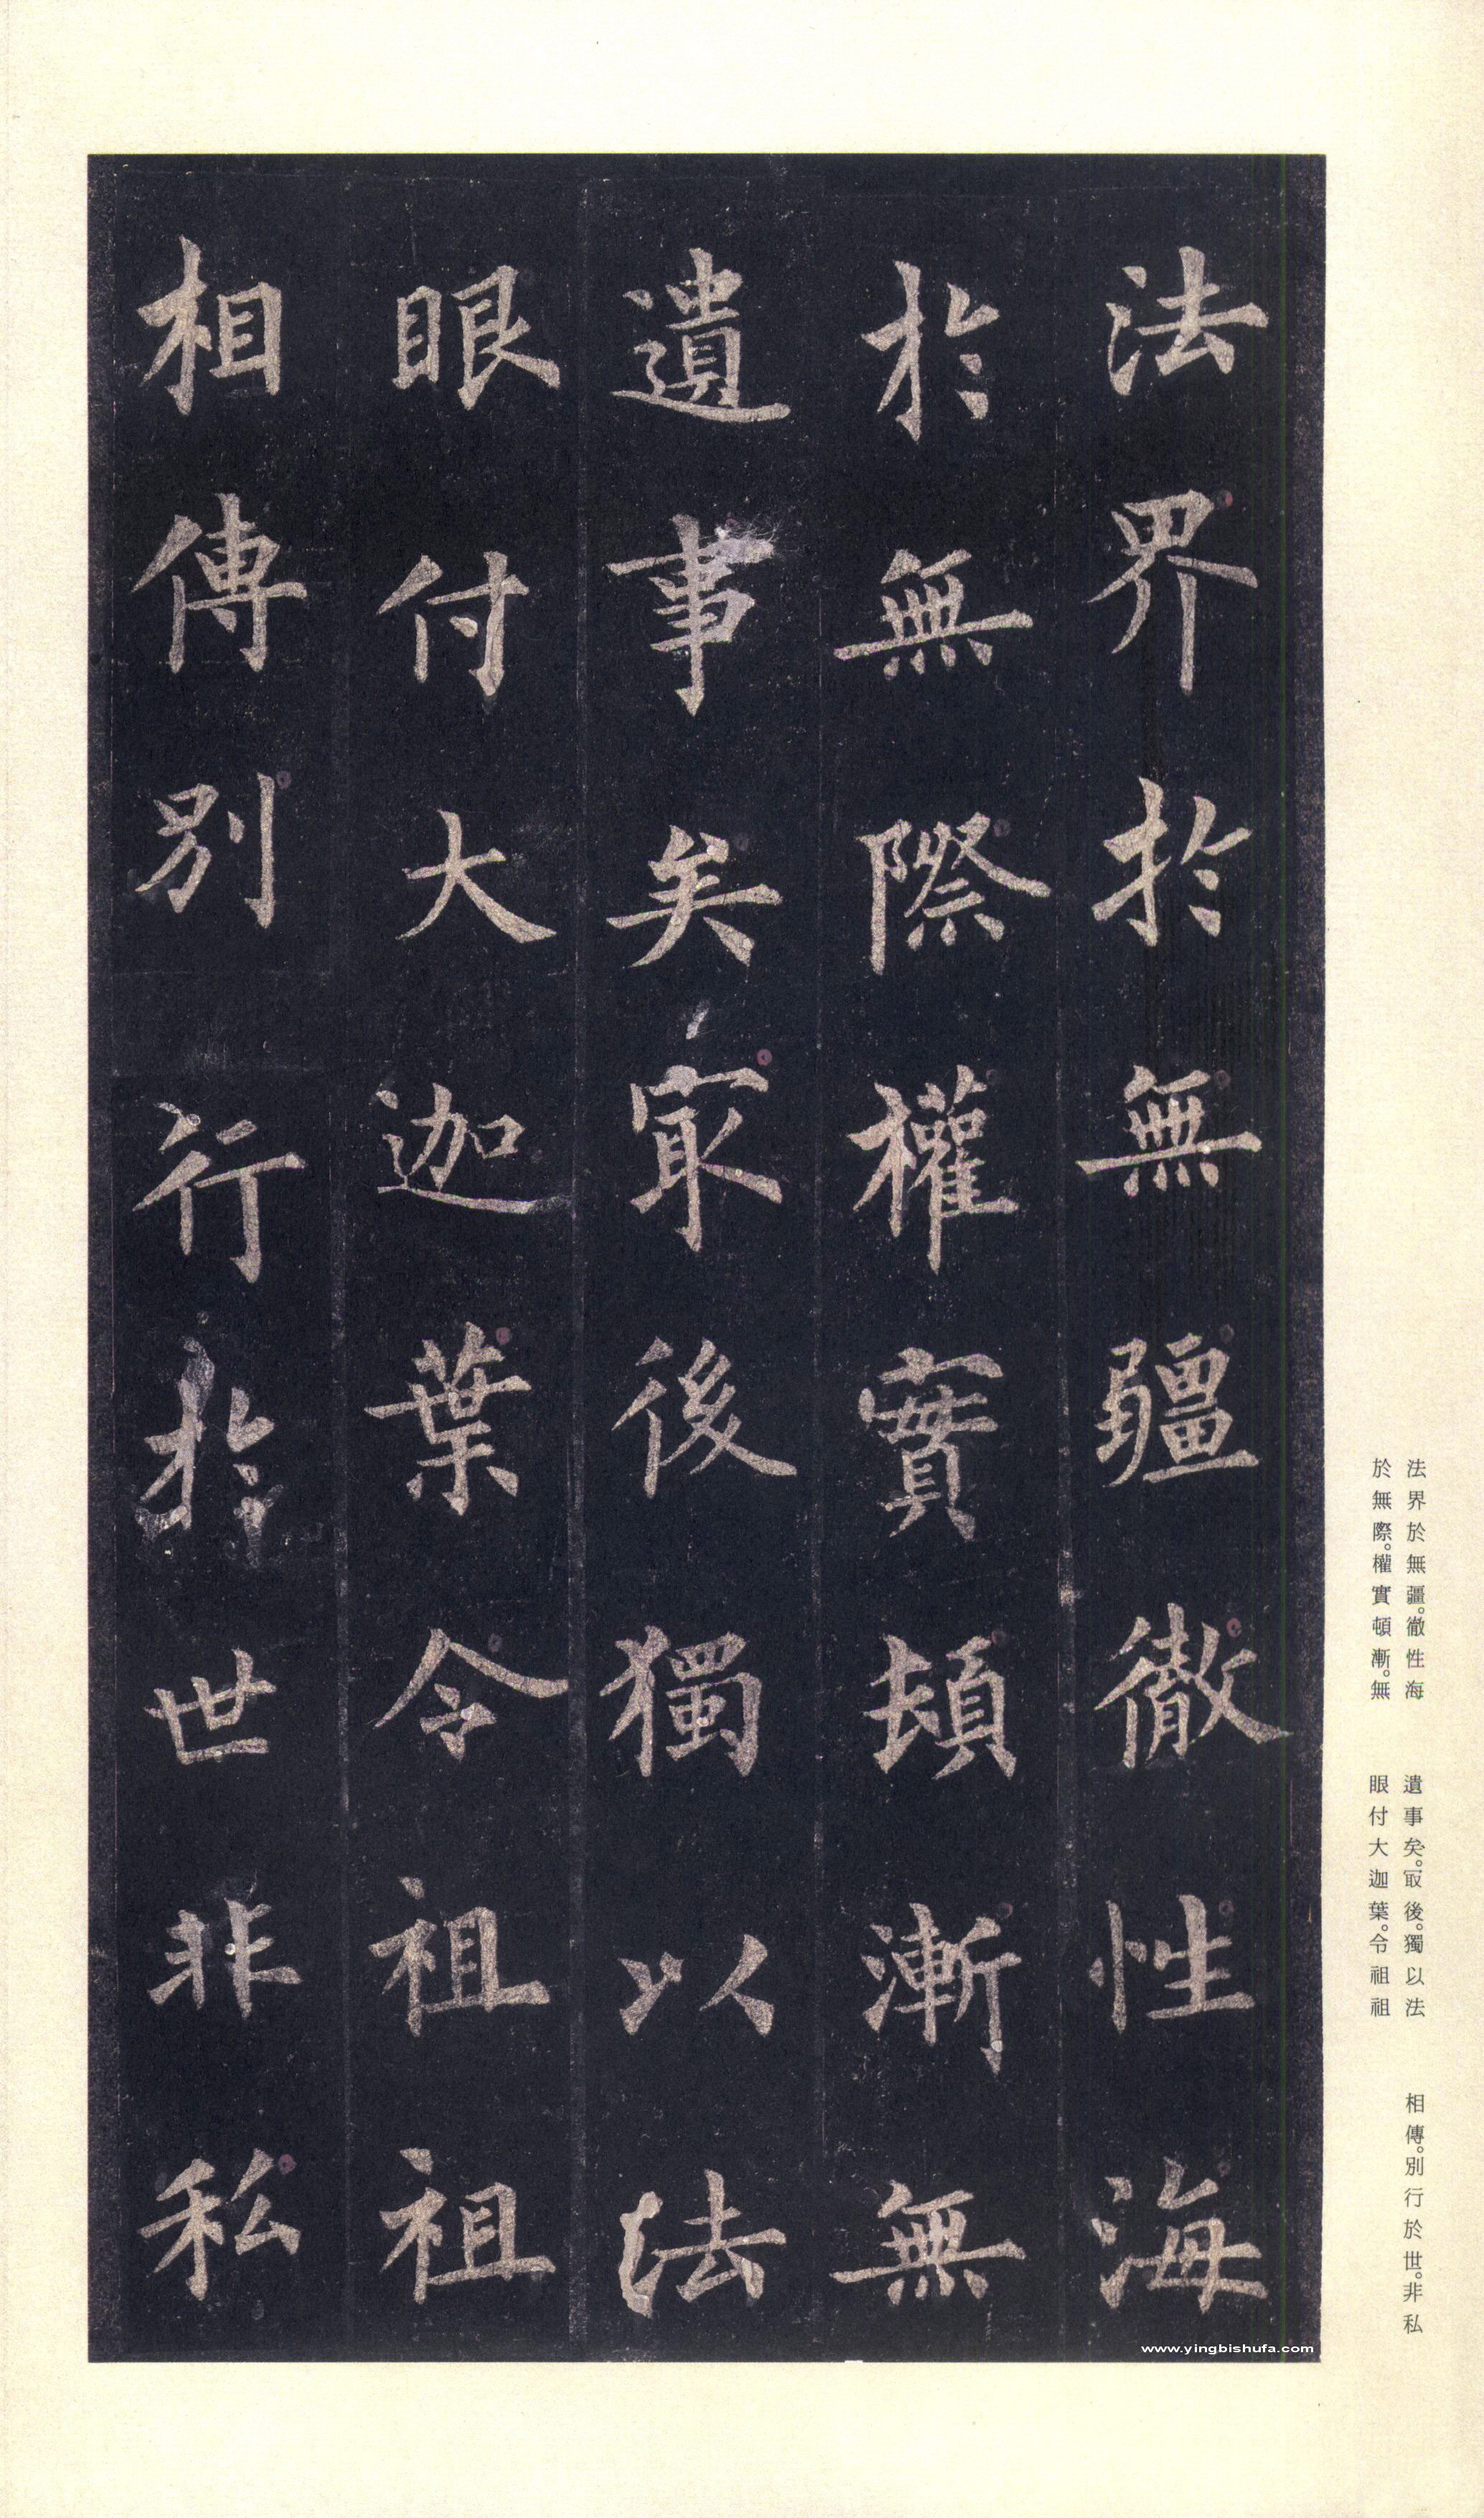 法界於無疆徹性海
於無際權實頓漸無
遺事矣㝡後獨以法
眼付大迦葉令祖祖
相傳別行於世非私
法界於無疆。徹性海
於無際。權實頓漸。無
遺事矣。㝡後。獨以法
眼付大迦葉。令祖祖
相傳。別行於世。非私
www.yingbishufa.com